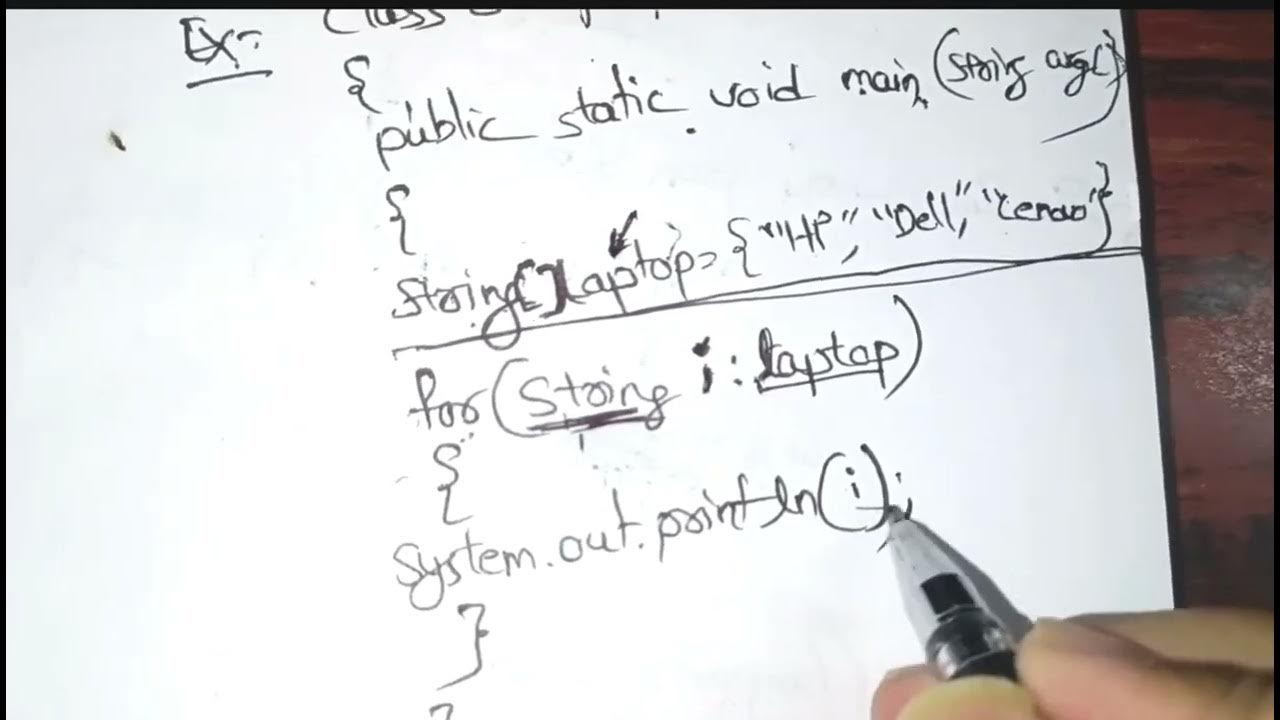 Ex:- class
{
public static void main (string arg[])
{
string[] laptop = {"HP", "Dell", "Lenovo"}
for (String i : laptop)
{
system.out.println(i);
}
}